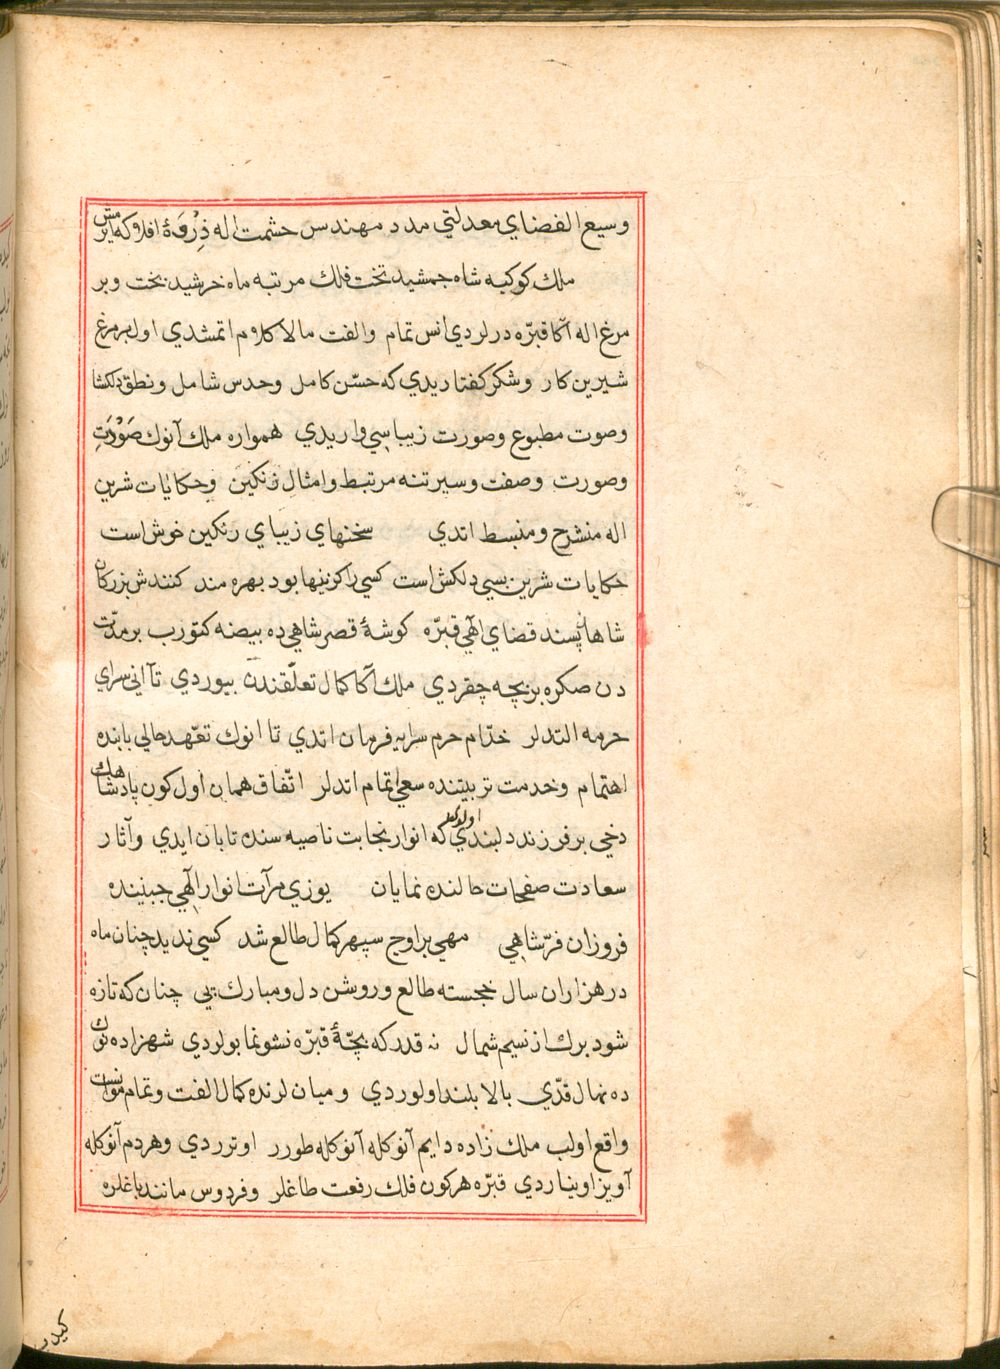 وسيع الفضاي معدلتي مدد مهندس حشمت اله ذِرْوَةٔ افلاكه ايرمش
ملك كوكبه شاه جمشيد تخت فلك مرتبه ماه خرشيد بخت و بر
مرغ اله آكا قبّره درلردي انس تمام والفت مالا كلام اتمشدي اول بر مرغ
شيرين كار و شكر كفتاريدي كه حسّن كامل وحدس شامل ونطق دلكشا
وصوت مطبوع وصورت زيباسي واريدي همواره ملك آنوك صَوْتِ
وصورت وصفت وسيرتنه مرتبط وامثال رنكين وحكايات شرين
اله منشرح ومنبسط اتدي سخنهاي زيباي رنكين خوش است
حكايات شرين بسي دلكش است كسي را كزينها بود بهره مند كنندش بزركان
شاهان پسند قضاي الهي قبّره كوشهٔ قصر شاهي ده بيضه كتورب بر مدّت
دن صكره بر بچه چقردي ملك آكا كمال تعلّقندن بيوردي تا آني سراي
حرمه التدلر خدّام حرم سرايه فرمان اتدي تا انوك تعهّد حالي بابنده
اهتمام وخدمت تربيتنده سعي اتمام اتدلر اتّفاق همان اول كون پادشاهك
دخي بر فرزند دلبندي اولدي كه انوار نجابت ناصيه سنده تابان ايدي وآثار
سعادت صفحات حالنده نمايان يوزي مرآت انوار الهي جبيننده
فروزان فرّ شاهي مهي بر اوج سپهر كمال طالع شد كسي نديد چنان ماه
در هزاران سال خجسته طالع وروشن دل ومبارك پي چنان كه تازه
شود برك از نسيم شمال نه قدر كه بچّهٔ قبّره نشونما بولوردي شهزاده نوك
ده نهال قدّي بالا بلند اولوردي وميان لرنده كمال الفت وتمام موانست
واقع اولب ملك زاده دايم آنوكله آنوكله طورر اوترردي وهردم آنوكله
آويز اوينار دي قبّره هر كون فلك رفعت طاغلر وفردوس مانند باغلره
كيدر